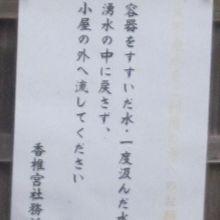 容器をすすいだ水・一度汲んだ水
湧水の中に戻さず、
小屋の外へ流してください
香椎宮社務